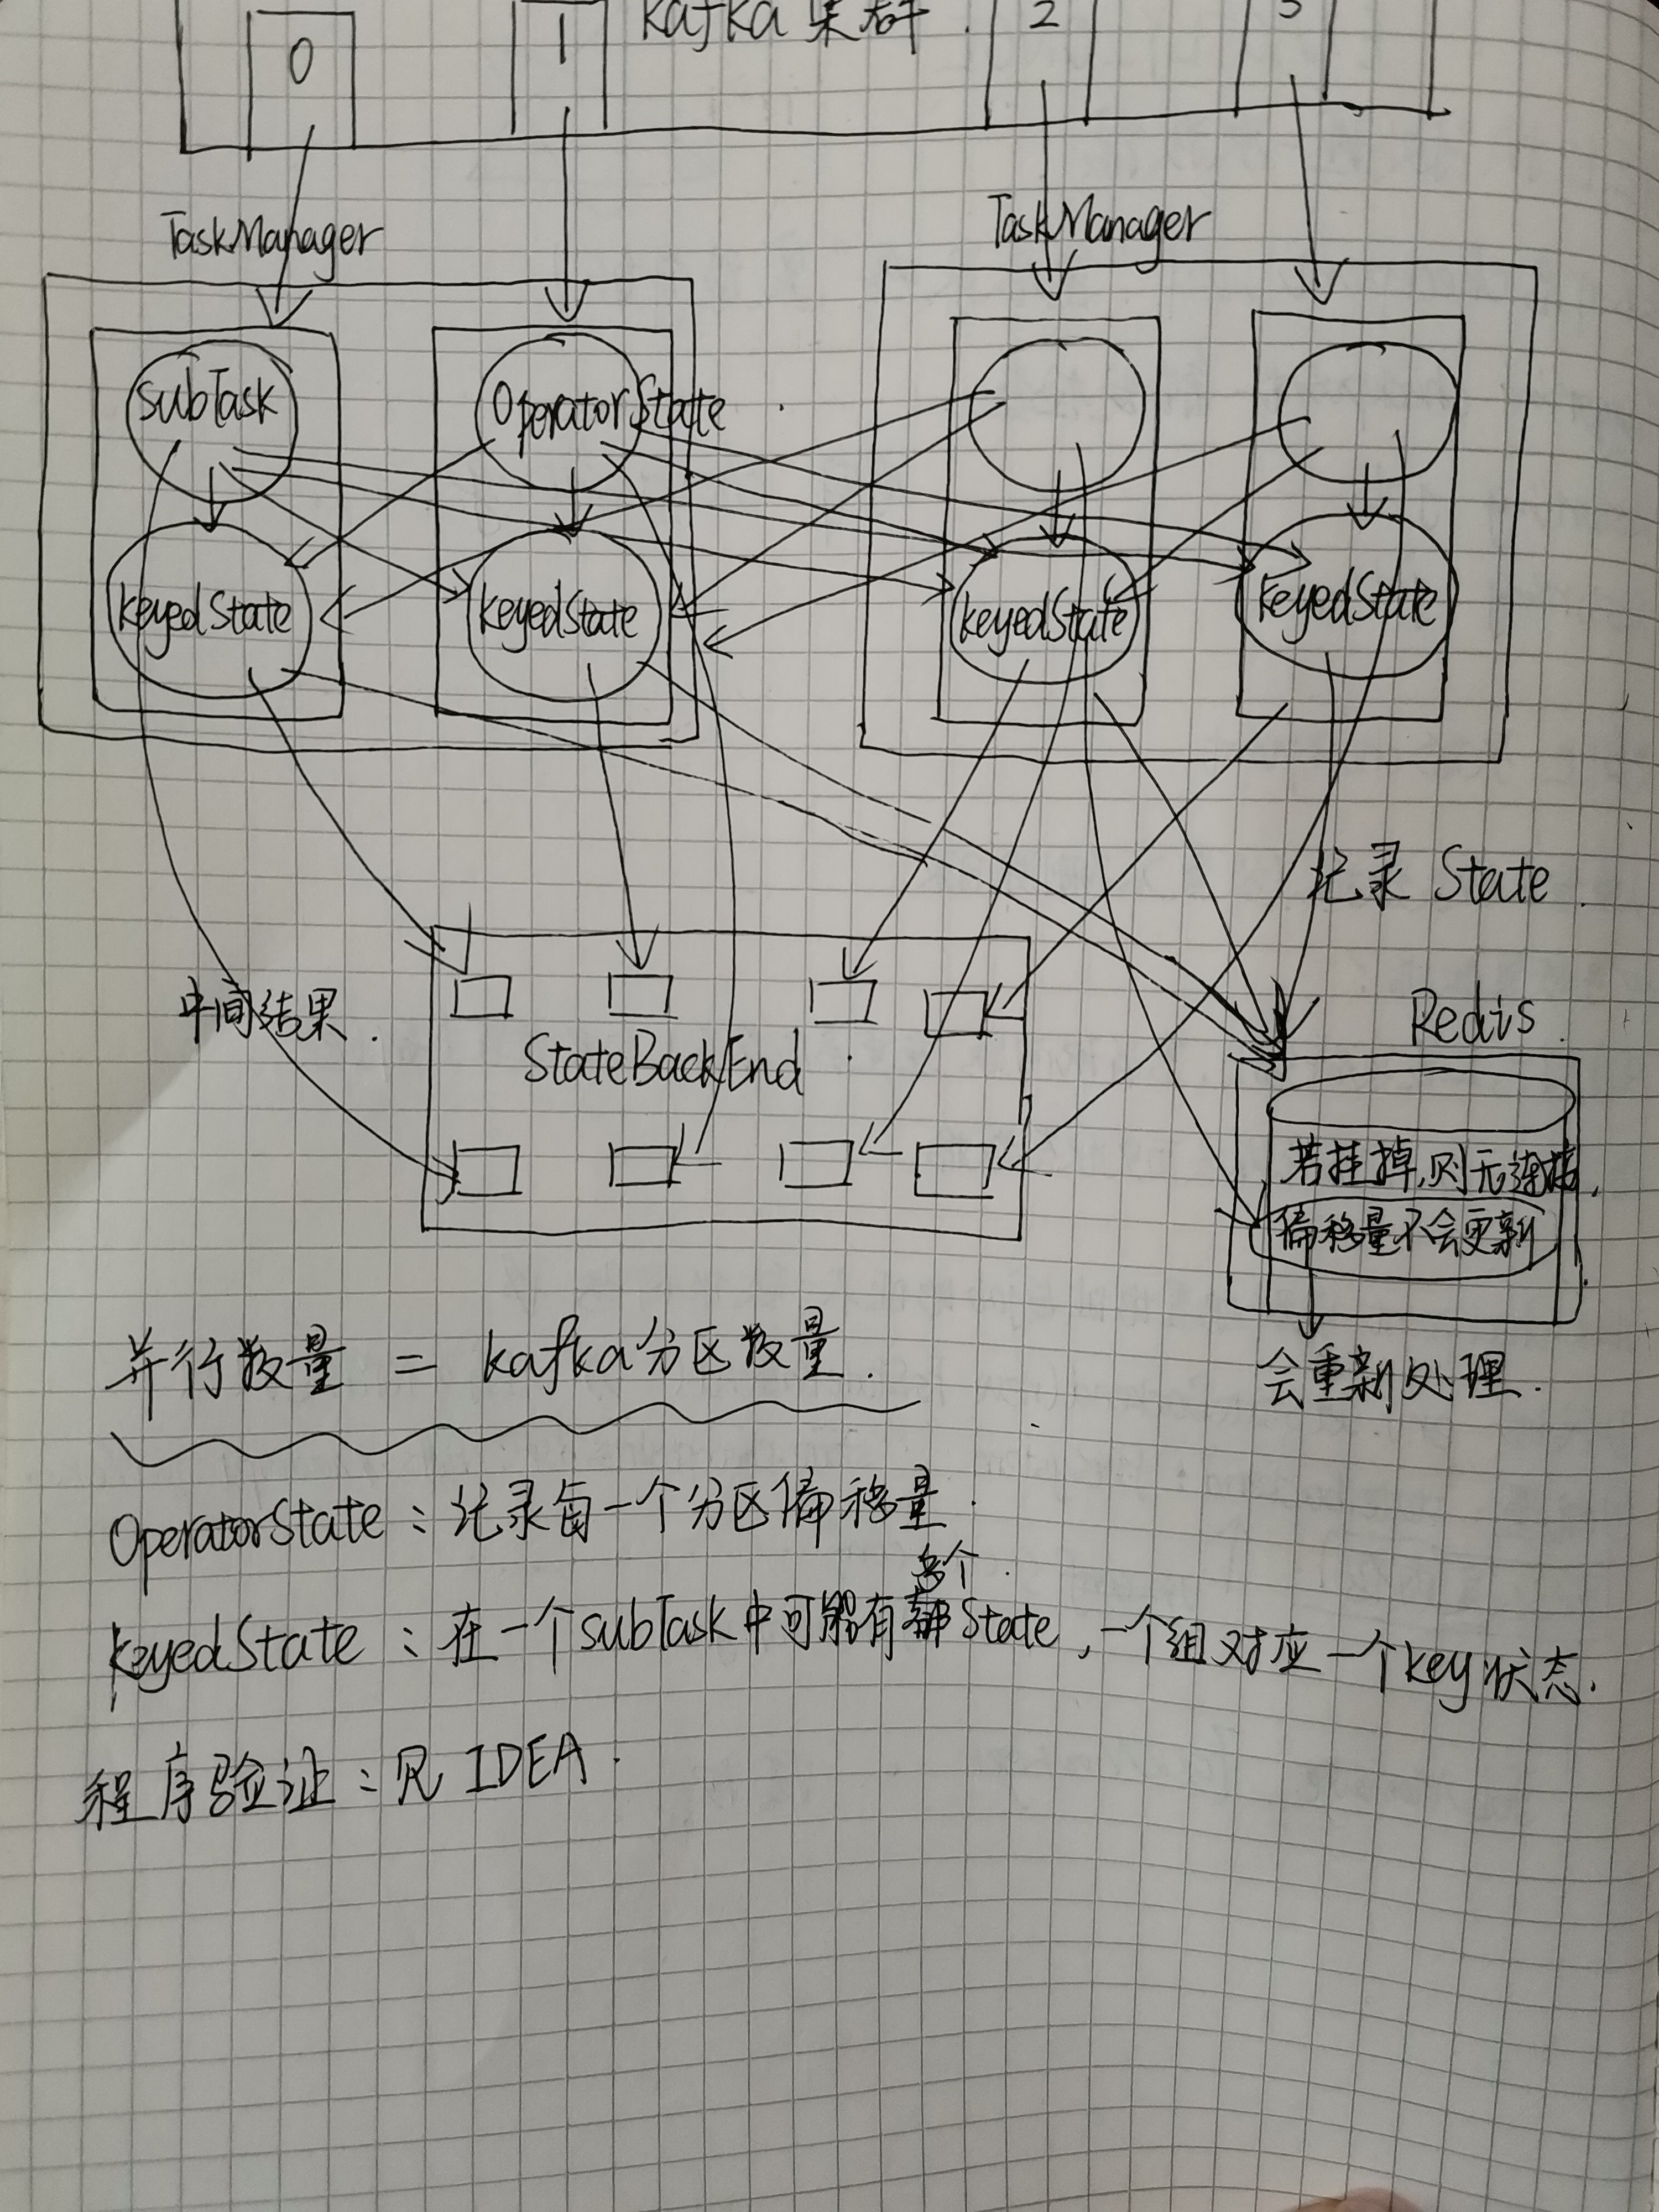 kafka集群.
0 1 2 3
TaskManager TaskManager
subTask OperatorState
keyedState keyedState keyedState keyedState
记录 State.
中间结果. Redis.
StateBackEnd
若挂掉,则无连接,
偏移量不会更新
会重新处理.
并行数量 = kafka分区数量.
OperatorState:记录每一个分区偏移量.
多个
KeyedState:在一个subTask中可能有State,一个组对应一个key状态.
程序验证:见 IDEA.